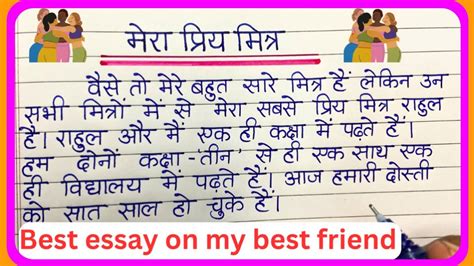 मेरा प्रिय मित्र
वैसे तो मेरे बहुत सारे मित्र हैं लेकिन उन
सभी मित्रों में से मेरा सबसे प्रिय मित्र राहुल
है। राहुल और मैं एक ही कक्षा में पढ़ते हैं।
हम दोनों कक्षा-तीन' से ही एक साथ एक
ही विद्यालय में पढ़ते हैं। आज हमारी दोस्ती
को सात साल हो चुके हैं।
Best essay on my best friend